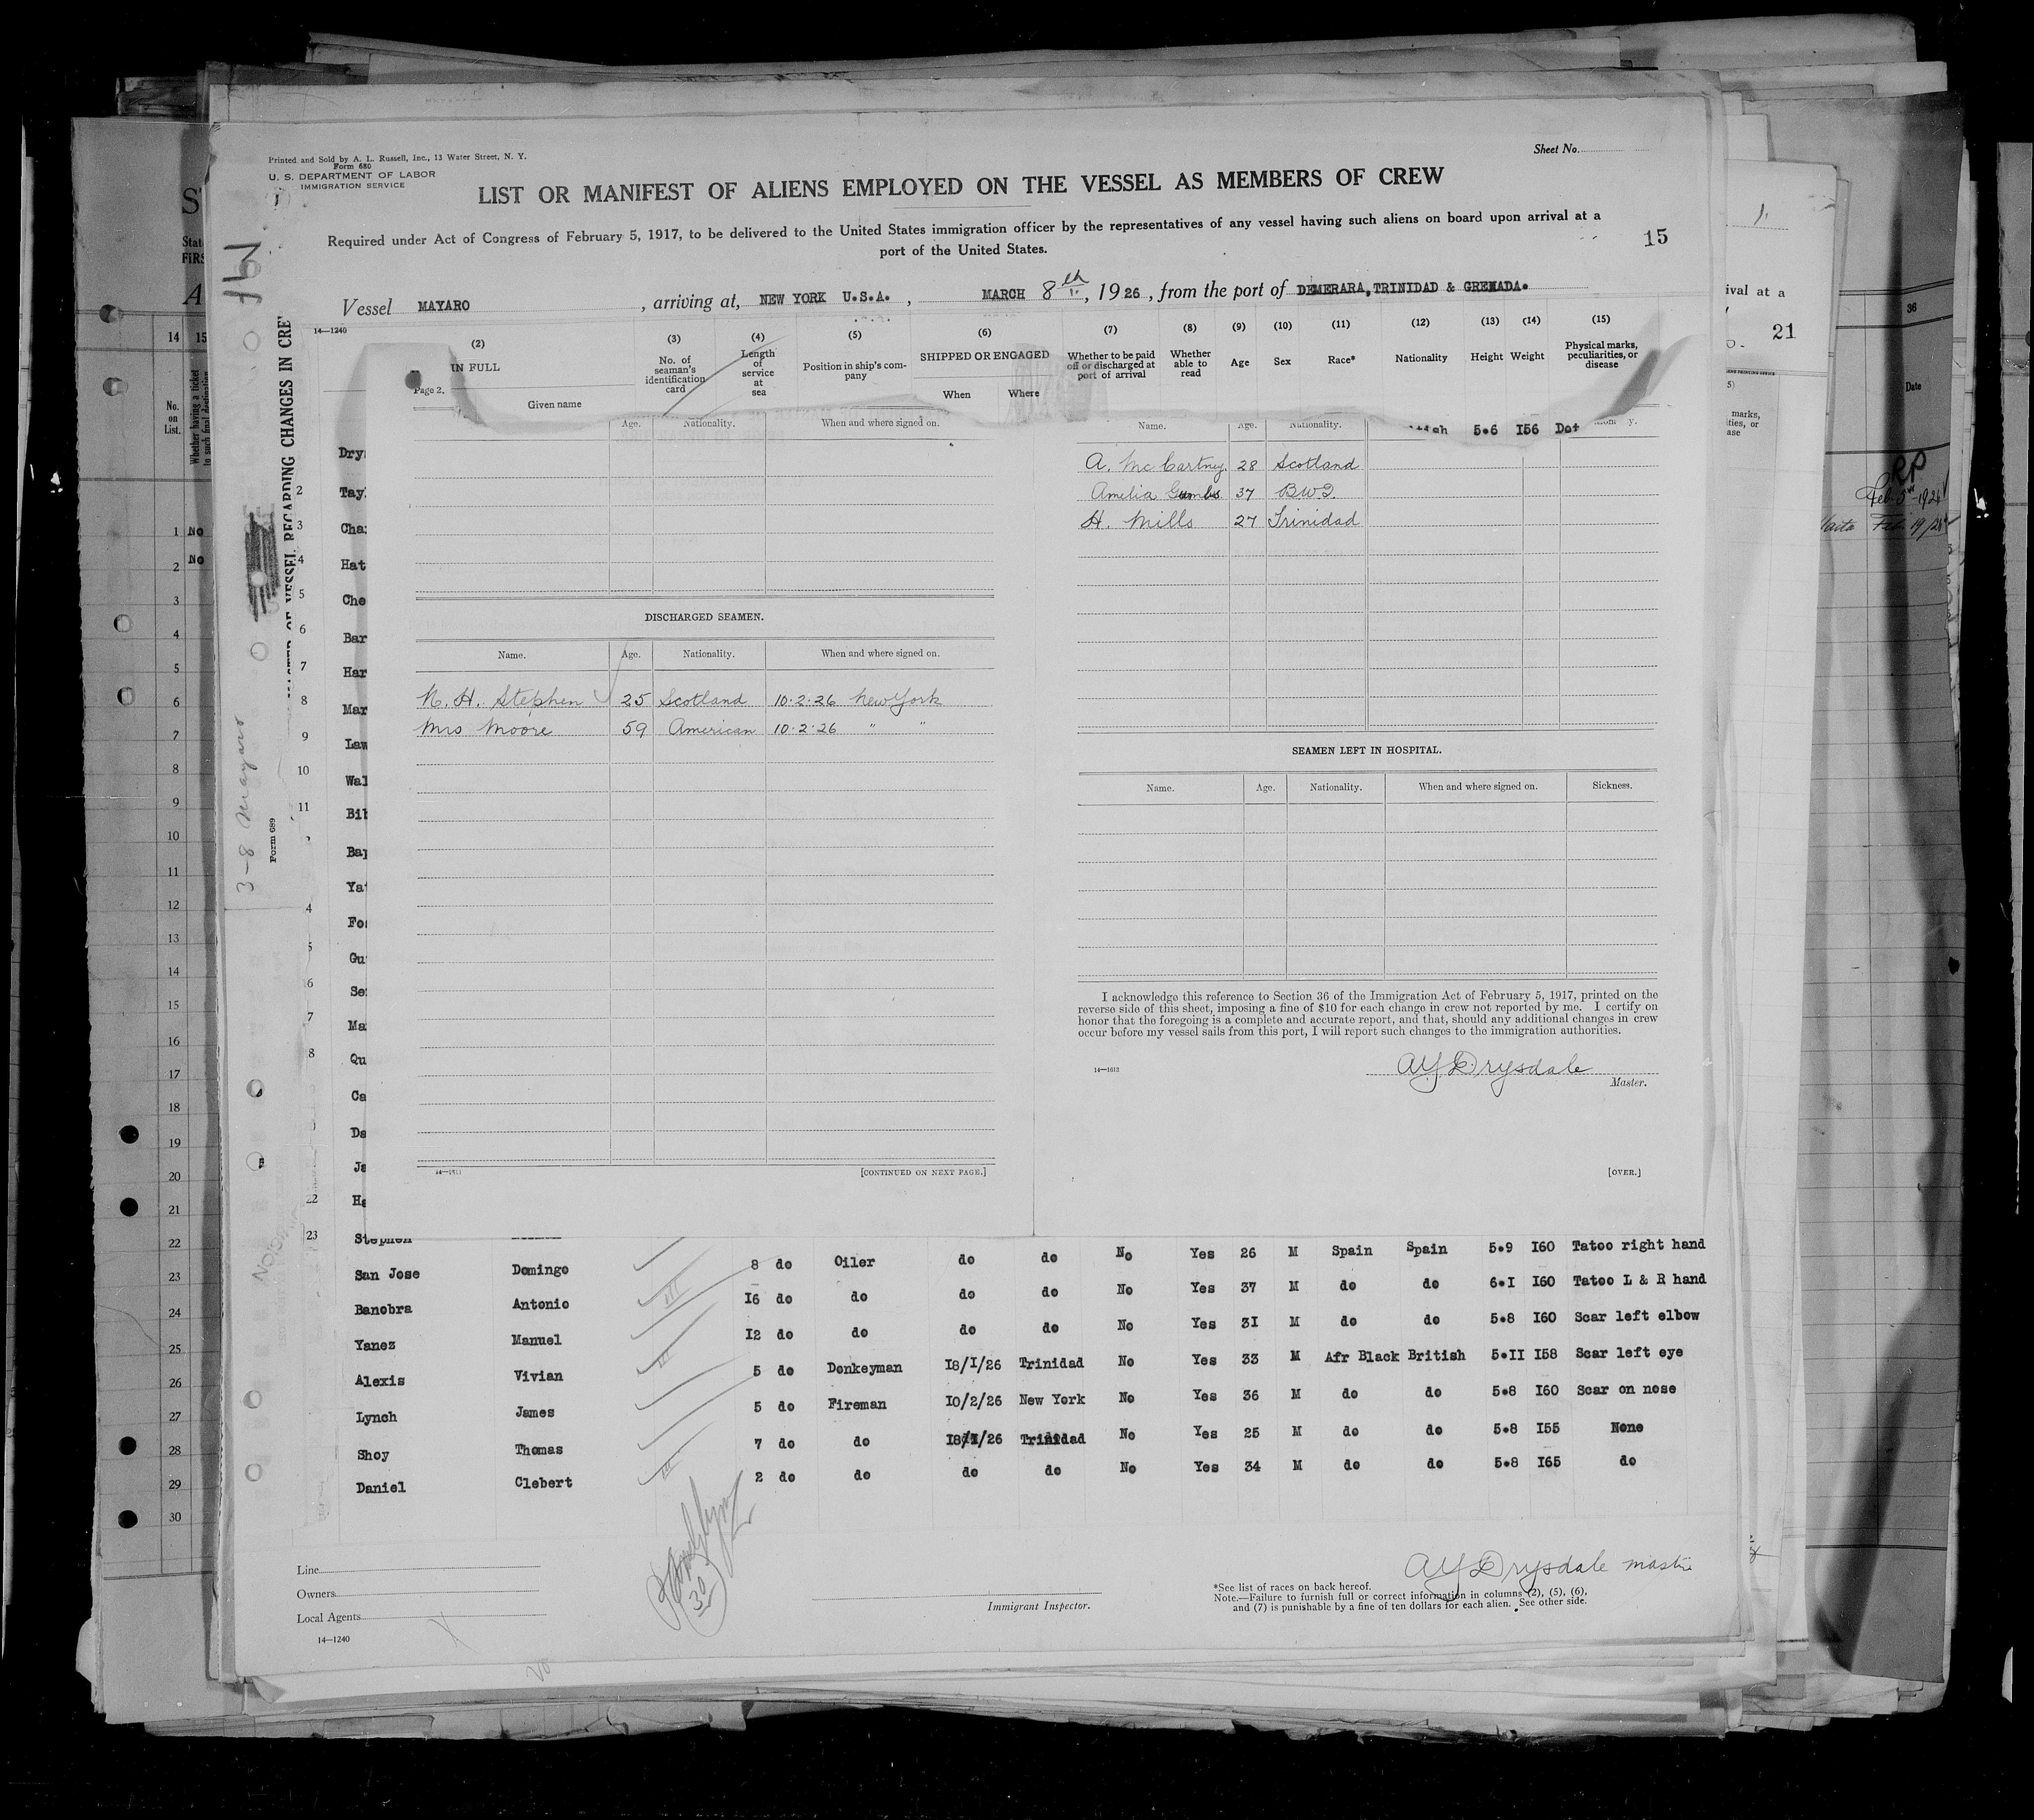 Printed and Sold by A. L. Russell, Inc., 13 Water Street, N. Y.
Form 680
U. S. DEPARTMENT OF LABOR
IMMIGRATION SERVICE
Sheet No.
LIST OR MANIFEST OF ALIENS EMPLOYED ON THE VESSEL AS MEMBERS OF CREW
Required under Act of Congress of February 5, 1917, to be delivered to the United States immigration officer by the representatives of any vessel having such aliens on board upon arrival at a
port of the United States.
15
Vessel MAYARO, arriving at, NEW YORK U.S.A., MARCH 8th, 1926, from the port of DEMERARA, TRINIDAD & GRENADA.
14—1240
(2) (3) (4) (5) (6) (7) (8) (9) (10) (11) (12) (13) (14) (15)
IN FULL
Given name
No. of seaman's identification card
Length of service at sea
Position in ship's company
SHIPPED OR ENGAGED
When Where
Whether to be paid off or discharged at port of arrival
Whether able to read
Age
Sex
Race*
Nationality
Height
Weight
Physical marks, peculiarities, or disease
Page 2.
Age. Nationality. When and where signed on.
Name. Age. Nationality.
5.6 I56
A. McCartney. 28 Scotland
Amelia Gumbs 37 B.W.I.
H. Mills 27 Trinidad
DISCHARGED SEAMEN.
Name. Age. Nationality. When and where signed on.
N. H. Stephen 25 Scotland 10.2.26 New York
Mrs Moore 59 American 10.2.26 " "
14—1611
[CONTINUED ON NEXT PAGE.]
SEAMEN LEFT IN HOSPITAL.
Name. Age. Nationality. When and where signed on. Sickness.
I acknowledge this reference to Section 36 of the Immigration Act of February 5, 1917, printed on the
reverse side of this sheet, imposing a fine of $10 for each change in crew not reported by me. I certify on
honor that the foregoing is a complete and accurate report, and that, should any additional changes in crew
occur before my vessel sails from this port, I will report such changes to the immigration authorities.
14—1613
AYDrysdale
Master.
[OVER.]
23 Stephen
San Jose Domingo 8 do Oiler do do No Yes 26 M Spain Spain 5.9 I60 Tatoo right hand
Banobra Antonio I6 do do do do No Yes 37 M do do 6.I I60 Tatoo L & R hand
Yanez Manuel I2 do do do do No Yes 3I M do do 5.8 I60 Scar left elbow
Alexis Vivian 5 do Donkeyman I8/I/26 Trinidad No Yes 33 M Afr Black British 5.II I58 Scar left eye
Lynch James 5 do Fireman I0/2/26 New York No Yes 36 M do do 5.8 I60 Scar on nose
Shoy Thomas 7 do do I8/I/26 Trinidad No Yes 25 M do do 5.8 I55 None
Daniel Clebert 2 do do do do No Yes 34 M do do 5.8 I65 do
30
Line
Owners
Local Agents
14—1240
Immigrant Inspector.
AYDrysdale master
*See list of races on back hereof.
Note.—Failure to furnish full or correct information in columns (2), (5), (6),
and (7) is punishable by a fine of ten dollars for each alien. See other side.
REGARDING CHANGES IN CRE
3-8 Mayaro
Form 689
21
36
Date
No. on List.
Whether having a ticket to such final destination